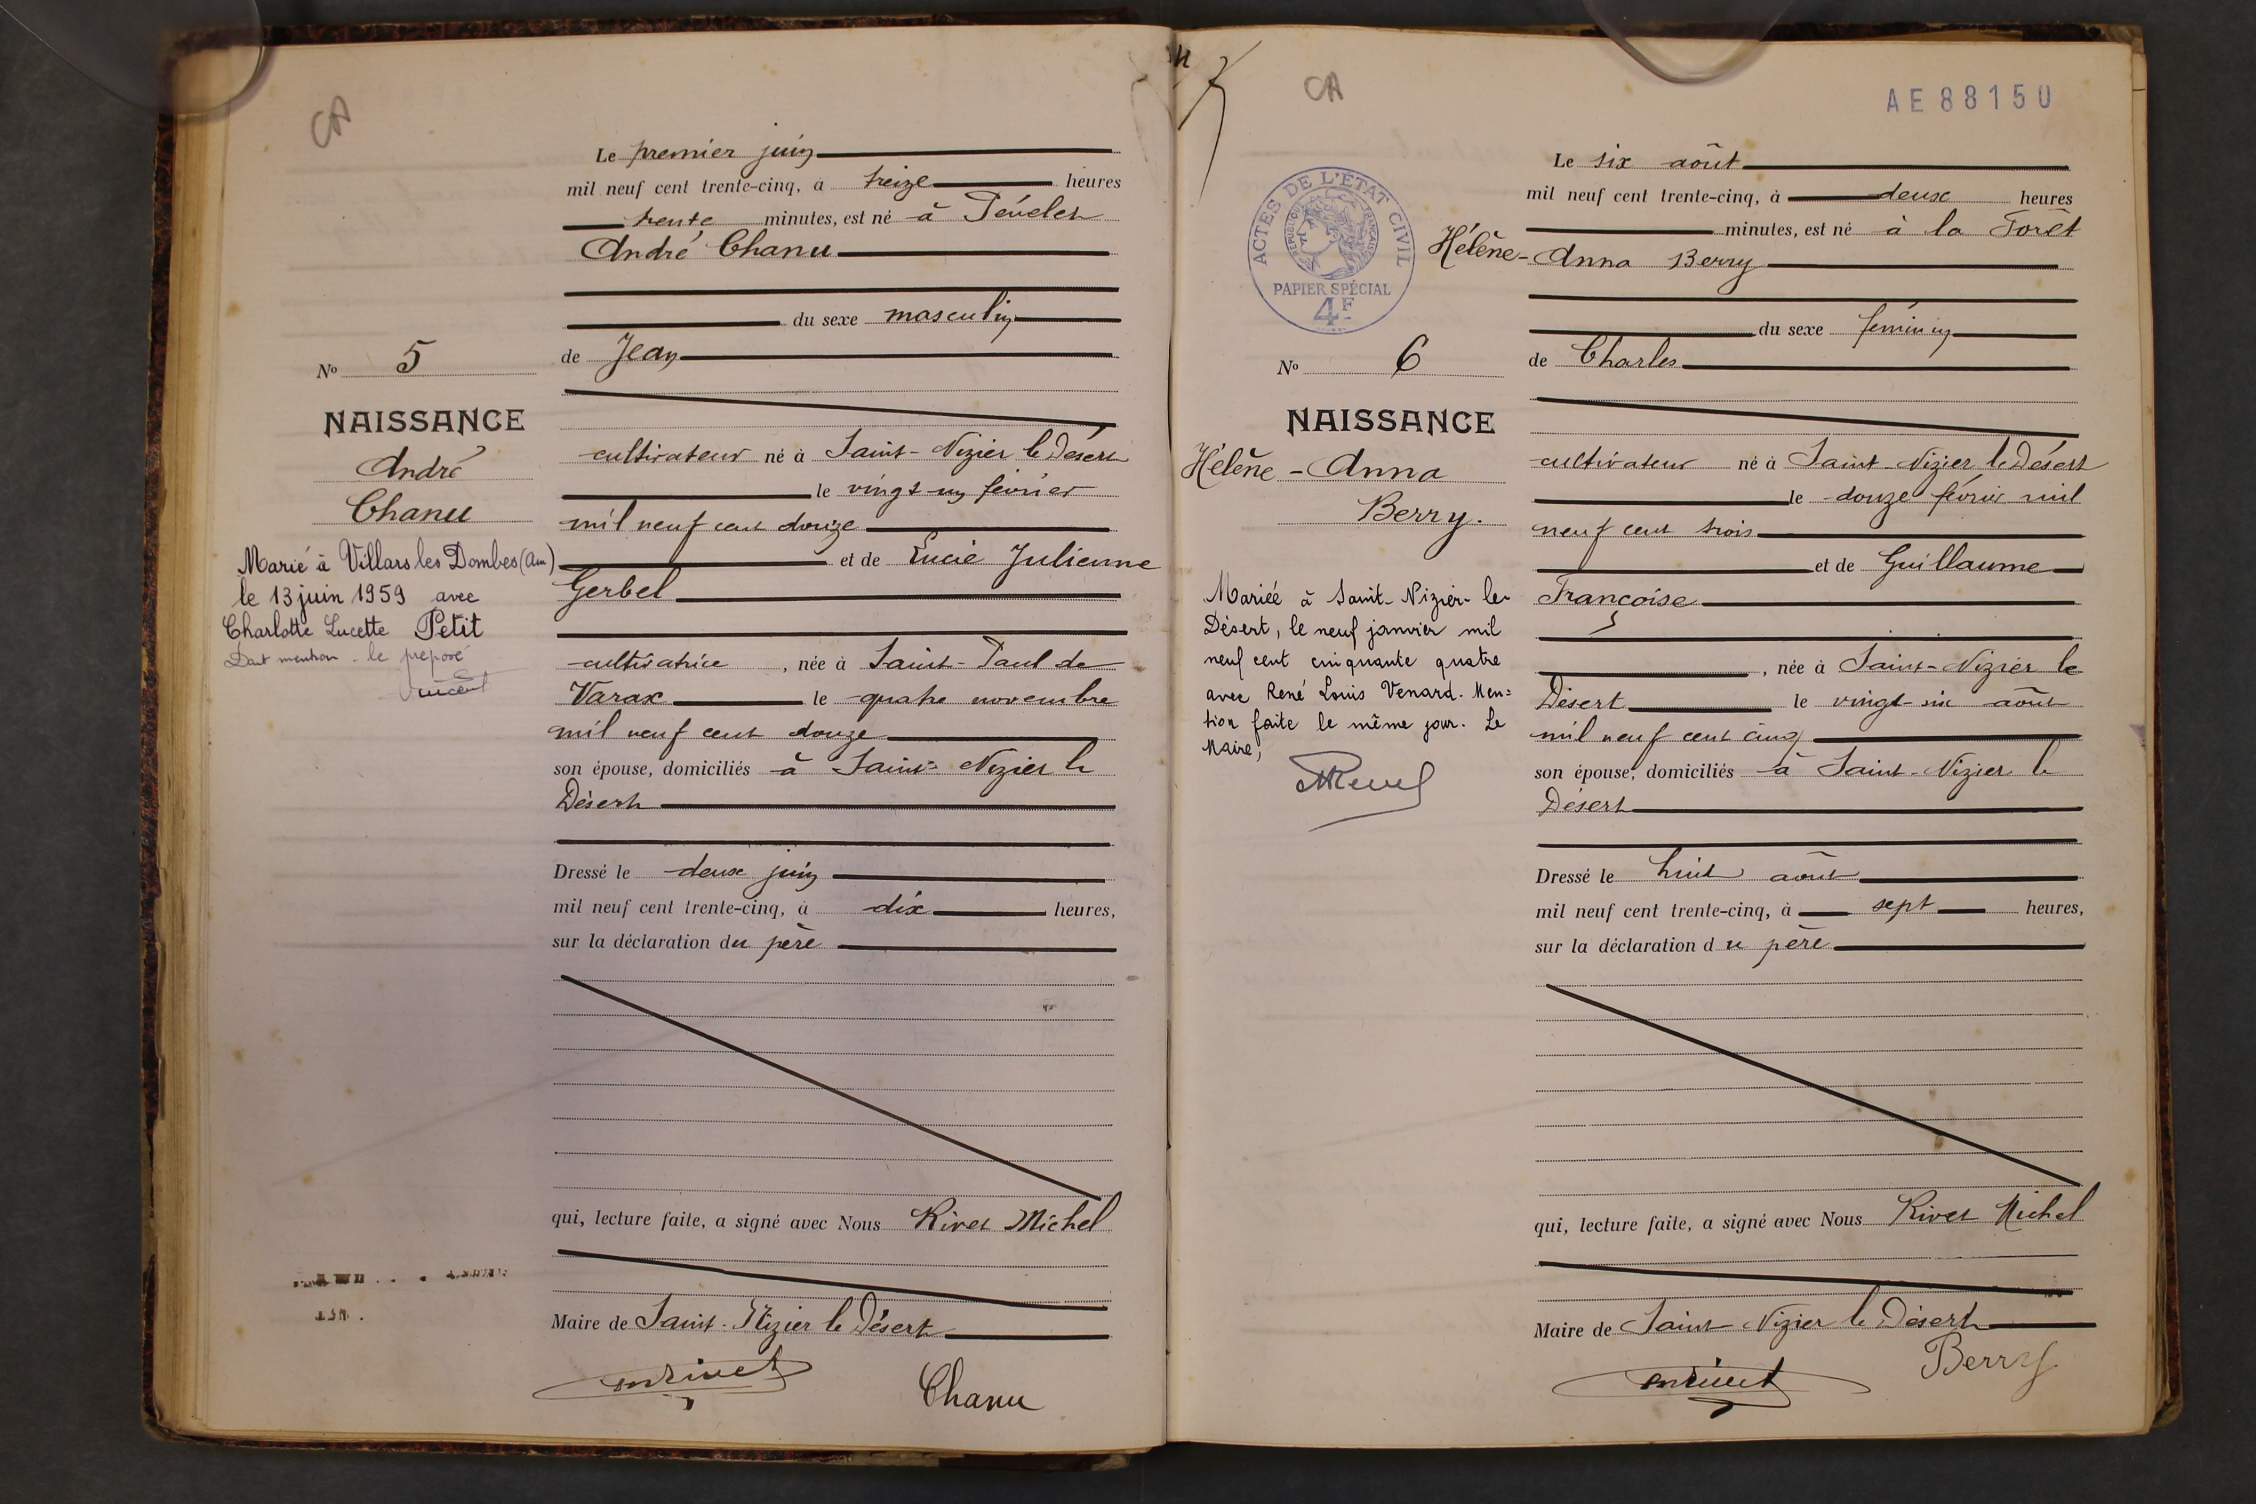 CA
Le premier juin
mil neuf cent trente-cinq, à treize heures
trente minutes, est né à Pévelet
André Chanu
du sexe masculin
de Jean
No 5
NAISSANCE
André
Chanu
cultivateur né à Saint-Nizier le Désert
le vingt-un février
mil neuf cent douze
et de Lucie Julienne
Gerbel
cultivatrice, née à Saint-Paul de
Varax le quatre novembre
mil neuf cent douze
son épouse, domiciliés à Saint-Nizier le
Désert
Marié à Villars les Dombes (Ain)
le 13 juin 1959 avec
Charlotte Lucette Petit
Dont mention - le préposé
Vincent
Dressé le deux juin
mil neuf cent trente-cinq, à dix heures,
sur la déclaration du père
qui, lecture faite, a signé avec Nous Rivet Michel
Maire de Saint-Nizier le Désert
mrivet
Chanu
CA
AE88150
Le six août
mil neuf cent trente-cinq, à deux heures
minutes, est né à la Forêt
Hélène-Anna Berry
du sexe féminin
de Charles
ACTES DE L'ETAT CIVIL
REPUBLIQUE FRANÇAISE
PAPIER SPÉCIAL
4F
No 6
NAISSANCE
Hélène-Anna
Berry.
cultivateur né à Saint-Nizier le Désert
le douze février mil
neuf cent trois
et de Guillaume
Françoise
, née à Saint-Nizier le
Désert le vingt-six août
mil neuf cent cinq
son épouse, domiciliés à Saint-Nizier le
Désert
Mariée à Saint-Nizier-le-
Désert, le neuf janvier mil
neuf cent cinquante quatre
avec René Louis Venard. Men=
tion faite le même jour. Le
Maire,
Dressé le huit août
mil neuf cent trente-cinq, à sept heures,
sur la déclaration du père
qui, lecture faite, a signé avec Nous Rivet Michel
Maire de Saint-Nizier le Désert
mrivet
Berry